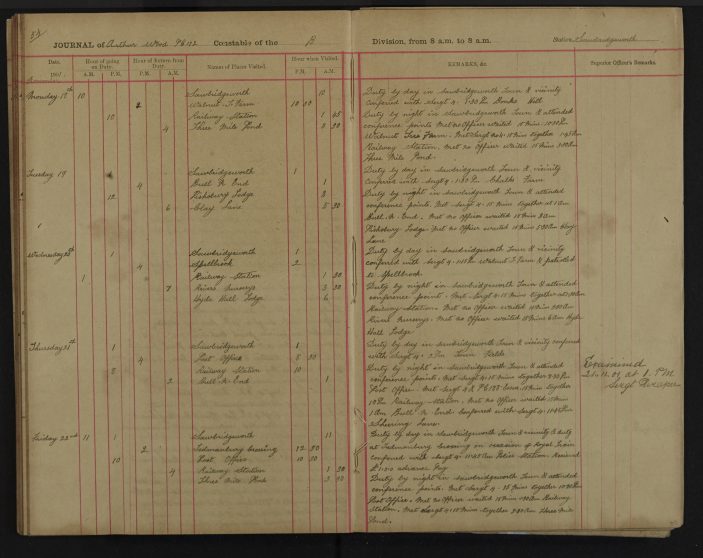 JOURNAL of Arthur Wood Constable of the B Division, from 8 a.m. to 8 a.m. Station Sawbridgeworth
Date. Hour of going on Duty. Hour of Return from Duty. Names of Places Visited. Hour when Visited. REMARKS, &c. Superior Officer's Remarks.
A.M. P.M. P.M. A.M. P.M. A.M.
Monday 18th 10 Sawbridgeworth 12 Duty by day in Sawbridgeworth Town & vicinity
2 Walnut T Farm 10 30 Confered with Sergt 4
10 Railway Station 1 45 Duty by night in Sawbridgeworth Town & attended
4 Three Mile Pond 3 30 conference points Met no Officer waited 15 Mins 10.30 Pm
Walnut Tree Farm. Met Sergt no 4 15 Mins together 1.45 Am
Railway Station. Met no Officer waited 15 Mins
Three Mile Pond.
Tuesday 19 Sawbridgeworth 1 Duty by day in Sawbridgeworth Town & vicinity
4 Bull N End 1 Confered with Sergt 4 Farm
12 Lodge 3 Duty by night in Sawbridgeworth Town & attended
6 Clay Lane 5 30 conference points. Met Sergt 4 15 Mins together at 1 Am
Bull N. End. Met no Officer waited 15 Mins 3 Am
Lodge. Met no Officer waited 15 Mins 5.30 Am Clay
Lane
Wednesday 20th Sawbridgeworth 1 Duty by day in Sawbridgeworth Town & vicinity
4 Spellbrook 2 confered with Sergt 4 Walnut T Farm & patroled
1 Railway Station 1 30 to Spellbrook
7 Rivers Nursery 3 30 Duty by night in Sawbridgeworth Town & attended
Hyde Hall Lodge 6 conference point. Met Sergt 4 15 Mins together
Railway Station. Met no Officer waited 15 Mins
Rivers Nursery. Met no Officer waited 15 Mins 6 Am Hyde
Hall Lodge
Thursday 21st 1 Sawbridgeworth 1 Duty by day in Sawbridgeworth Town & vicinity confered
4 Post Office 8 30 with Sergt 4 2 Pm Town
8 Railway Station 10 Duty by night in Sawbridgeworth Town & attended
2 Bull N End 1 conference points. Met Sergt 4 15 Mins together 8.30 Pm
Post Office Met Sergt 4 & 15 Mins together
10 Pm Railway Station. Met no Officer waited 15 Mins
1 Am Bull N End Confered with Sergt 4
Shering Lane.
Examined
21.11.01 at 1 P.M
Sergt
Friday 22nd 11 Sawbridgeworth 11 Duty by day in Sawbridgeworth Town & vicinity & duty
2 Tednambury Crossing 12 30 at Tednambury Crossing on occasion of Royal Train
10 Post Office 10 30 confered with Sergt 4 Police Station. Received
4 Railway Station 1 30 advance Pay
Three Mile Pond 3 Duty by night in Sawbridgeworth Town & attended
conference points. Met Sergt 4 15 Mins together 10.30 Pm
Post Office. Met no Officer waited 15 Mins 1.30 Am Railway
Station. Met Sergt 4 15 Mins together Three Mile
Pond.